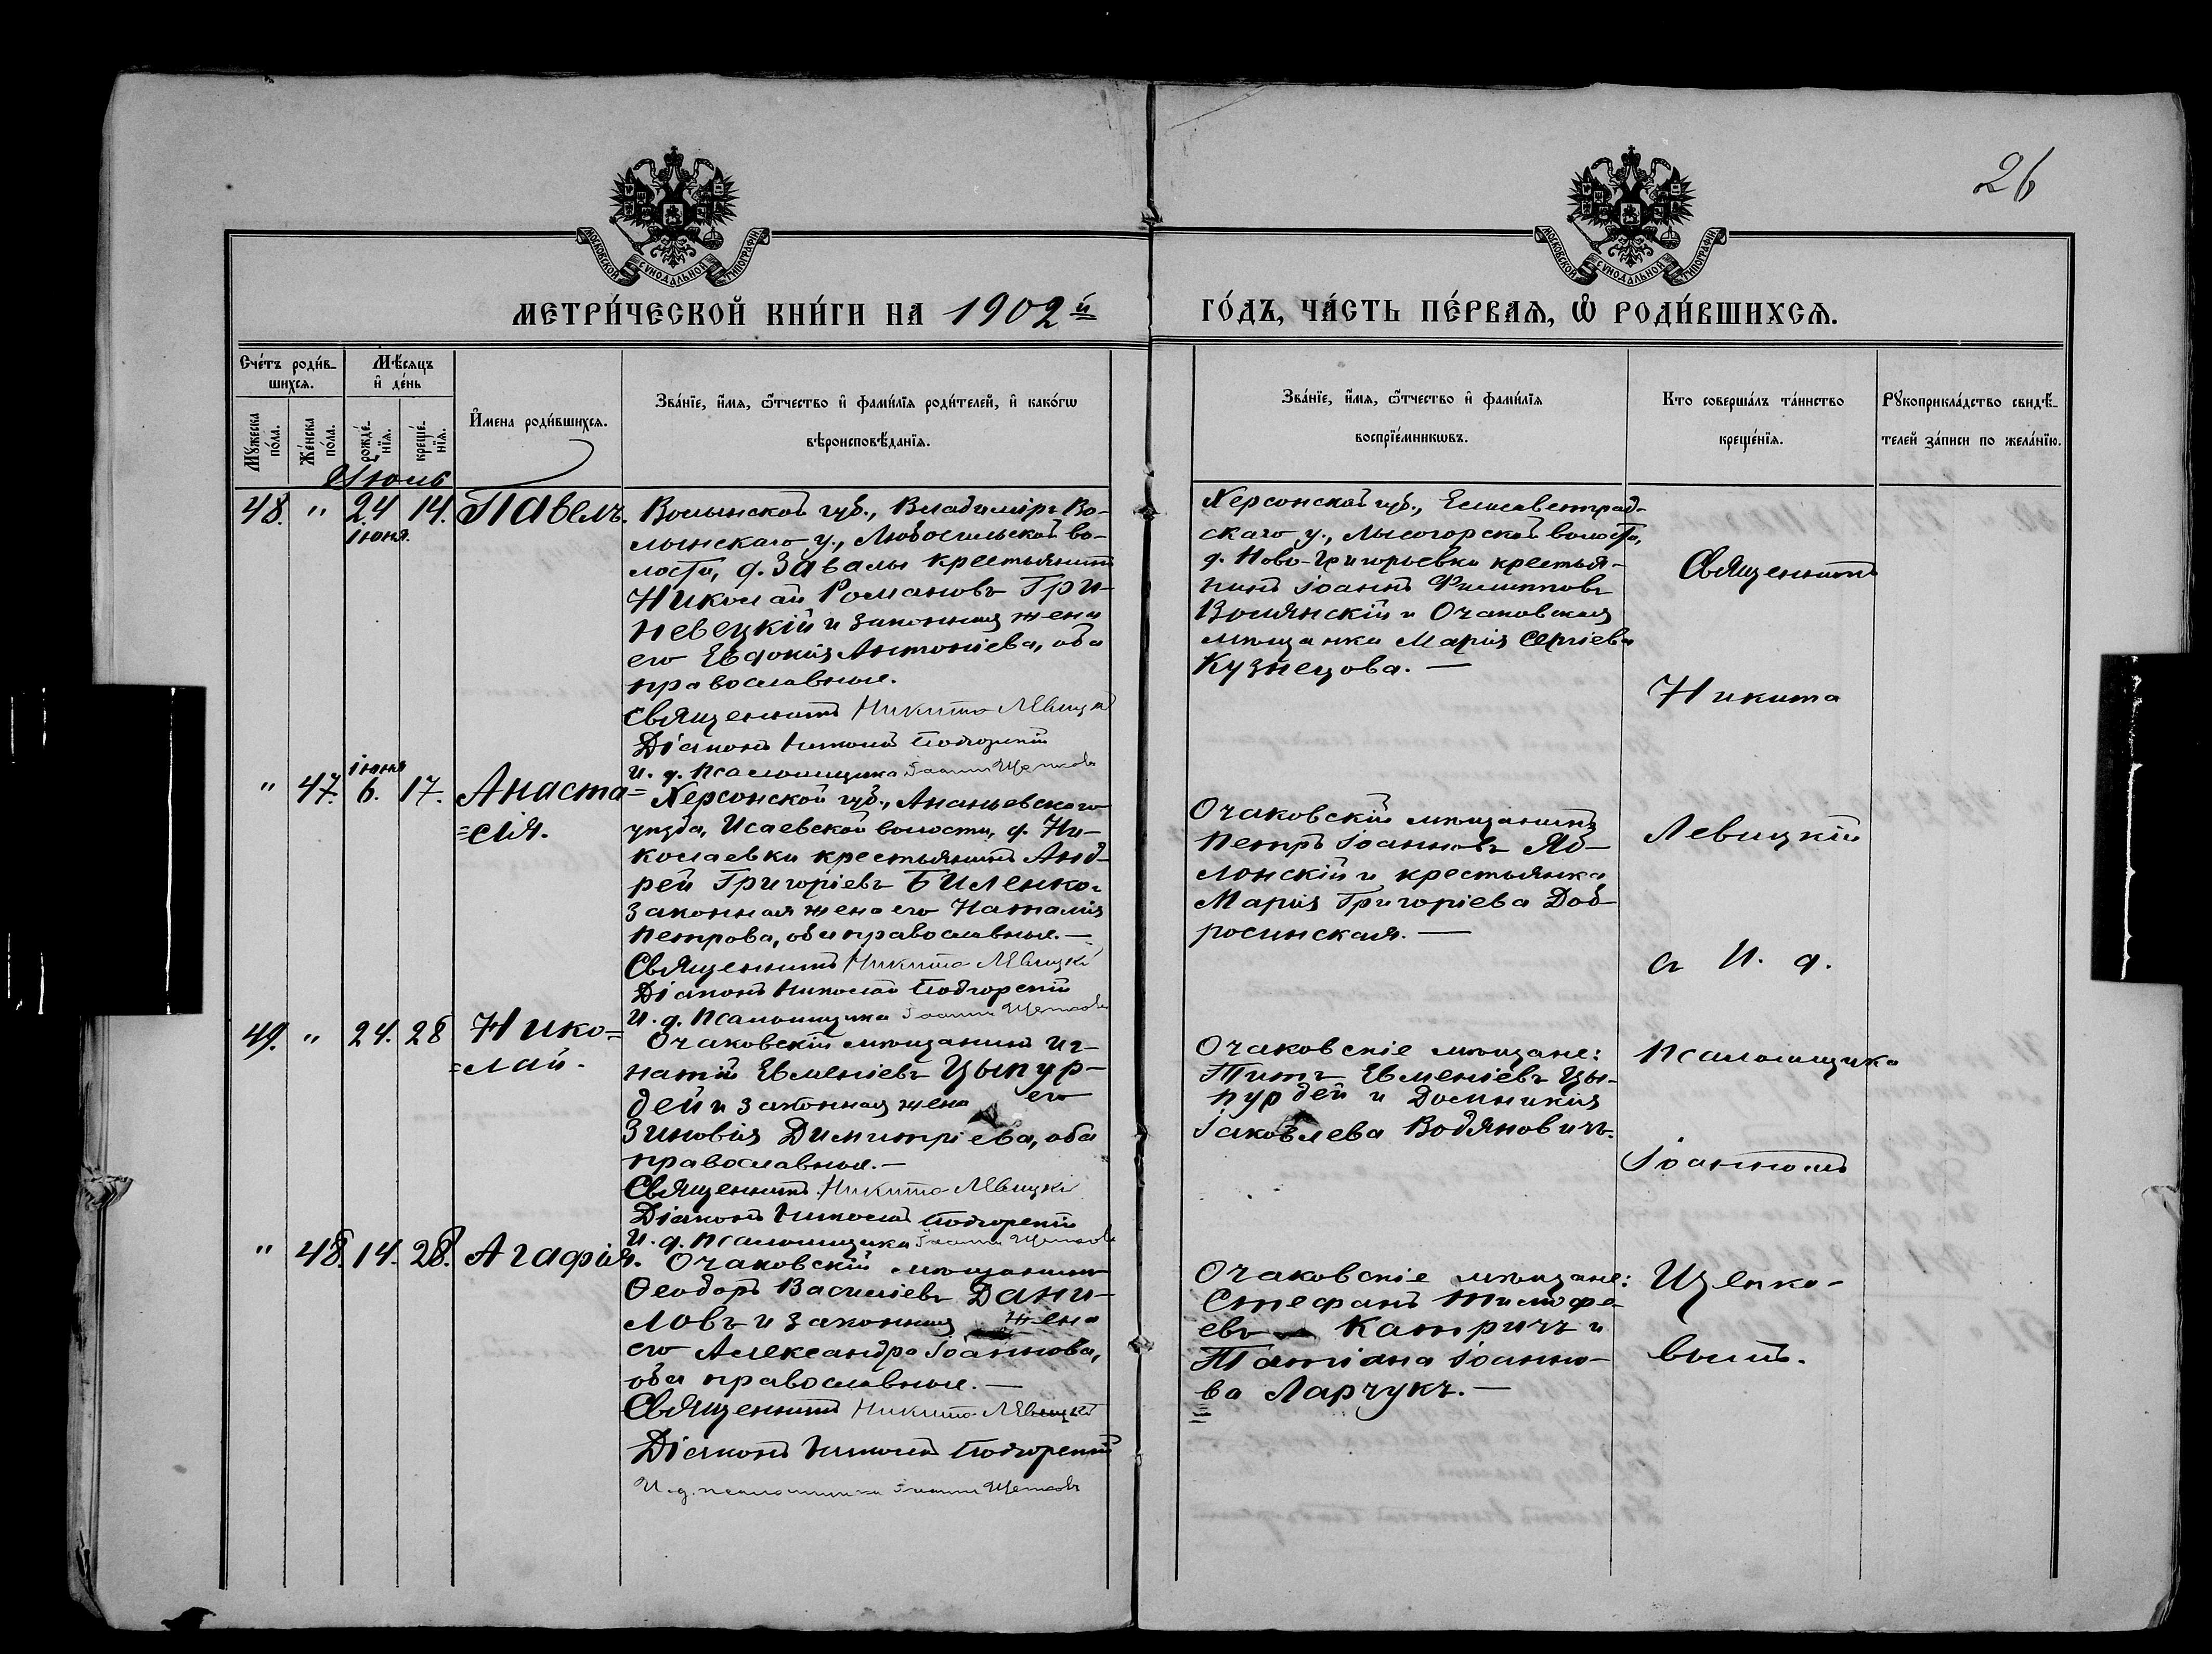 26
МОСКОВСКОЙ СѴНОДАЛЬНОЙ ТИПОГРАФІИ
МОСКОВСКОЙ СѴНОДАЛЬНОЙ ТИПОГРАФІИ
МЕТРИ́ЧЕСКОЙ КНИ́ГИ НА 1902й
ГО́ДЪ, ЧА́СТЬ ПЕ́РВАѦ, Ѡ РОДИ́ВШИХСѦ.
Сче́тъ роди́в-
шихсѧ.
Мѣ́сѧцъ
и҆ де́нь
Мꙋ́жеска
по́ла.
Же́нска
по́ла.
рожде́-
нїѧ.
креще́-
нїѧ.
И҆мена роди́вшихсѧ.
Зва́нїе, и҆́мѧ, ѻ҆́тчество и҆ фами́лїѧ роди́телей, и҆ како́гѡ
вѣроисповѣ́данїѧ.
Зва́нїе, и҆́мѧ, ѻ҆́тчество и҆ фами́лїѧ
воспрїе́мникѡвъ.
Кто соверша́лъ та́инство
креще́нїѧ.
Рꙋкоприкла́дство свидѣ́-
телей за́писи по жела́нїю.
Іюль
48. " 24 14. Павелъ.
іюня.
Волынской губ., Владиміръ Во-
лынскаго у., Любомльской во-
лости, д. Завалы крестьянинъ
Николай Романовъ Гри-
невецкій и законная жена
его Евдокія Антоніева, оба
православные.
Священникъ Никита Левицкій
Діаконъ Николай Подгорскій
И. д. псаломщика Іоаннъ Щепковъ
Херсонской губ., Елисаветград-
скаго у., Лысогорской волости,
д. Ново-Григорьевки крестья-
нинъ Іоаннъ Филипповъ
Волянскій и Очаковская
мѣщанка Марія Сергіева
Кузнецова. —
іюня
" 47. 6. 17. Анаста=
=сія.
Херсонской губ., Ананьевскаго
уѣзда, Исаевской волости, д. Ни-
колаевки крестьянинъ Анд-
рей Григоріевъ Биленко и
законная жена его Наталія
Петрова, оба православные. —
Священникъ Никита Левицкій
Діаконъ Николай Подгорскій
И. д. псаломщика Іоаннъ Щепковъ
Очаковскій мѣщанинъ
Петръ Іоанновъ Яб-
лонскій и крестьянка
Марія Григоріева Доб-
росинская. —
49. " 24. 28 Нико=
=лай.
Очаковскій мѣщанинъ Иг-
натій Евменіевъ Цыпур-
дей и законная жена его
Зиновія Димитріева, оба
православные. —
Священникъ Никита Левицкій
Діаконъ Николай Подгорскій
И. д. псаломщика Іоаннъ Щепковъ
Очаковскіе мѣщане:
Титъ Евменіевъ Цы-
пурдей и Домникія
Іаковлева Водяновичъ.
" 48. 14. 28. Агафія.
Очаковскій мѣщанинъ
Ѳеодоръ Василіевъ Дани-
ловъ и законная жена
его Александра Іоаннова,
оба православные. —
Священникъ Никита Левицкій
Діаконъ Николай Подгорскій
И. д. псаломщика Іоаннъ Щепковъ
Очаковскіе мѣщане:
Стефанъ Тимофе-
евъ Катричъ и
Татіана Іоанно-
ва Ларчукъ. —
Священникъ
Никита
Левицкій
съ И. д.
псаломщика
Іоанномъ
Щепко-
вымъ.